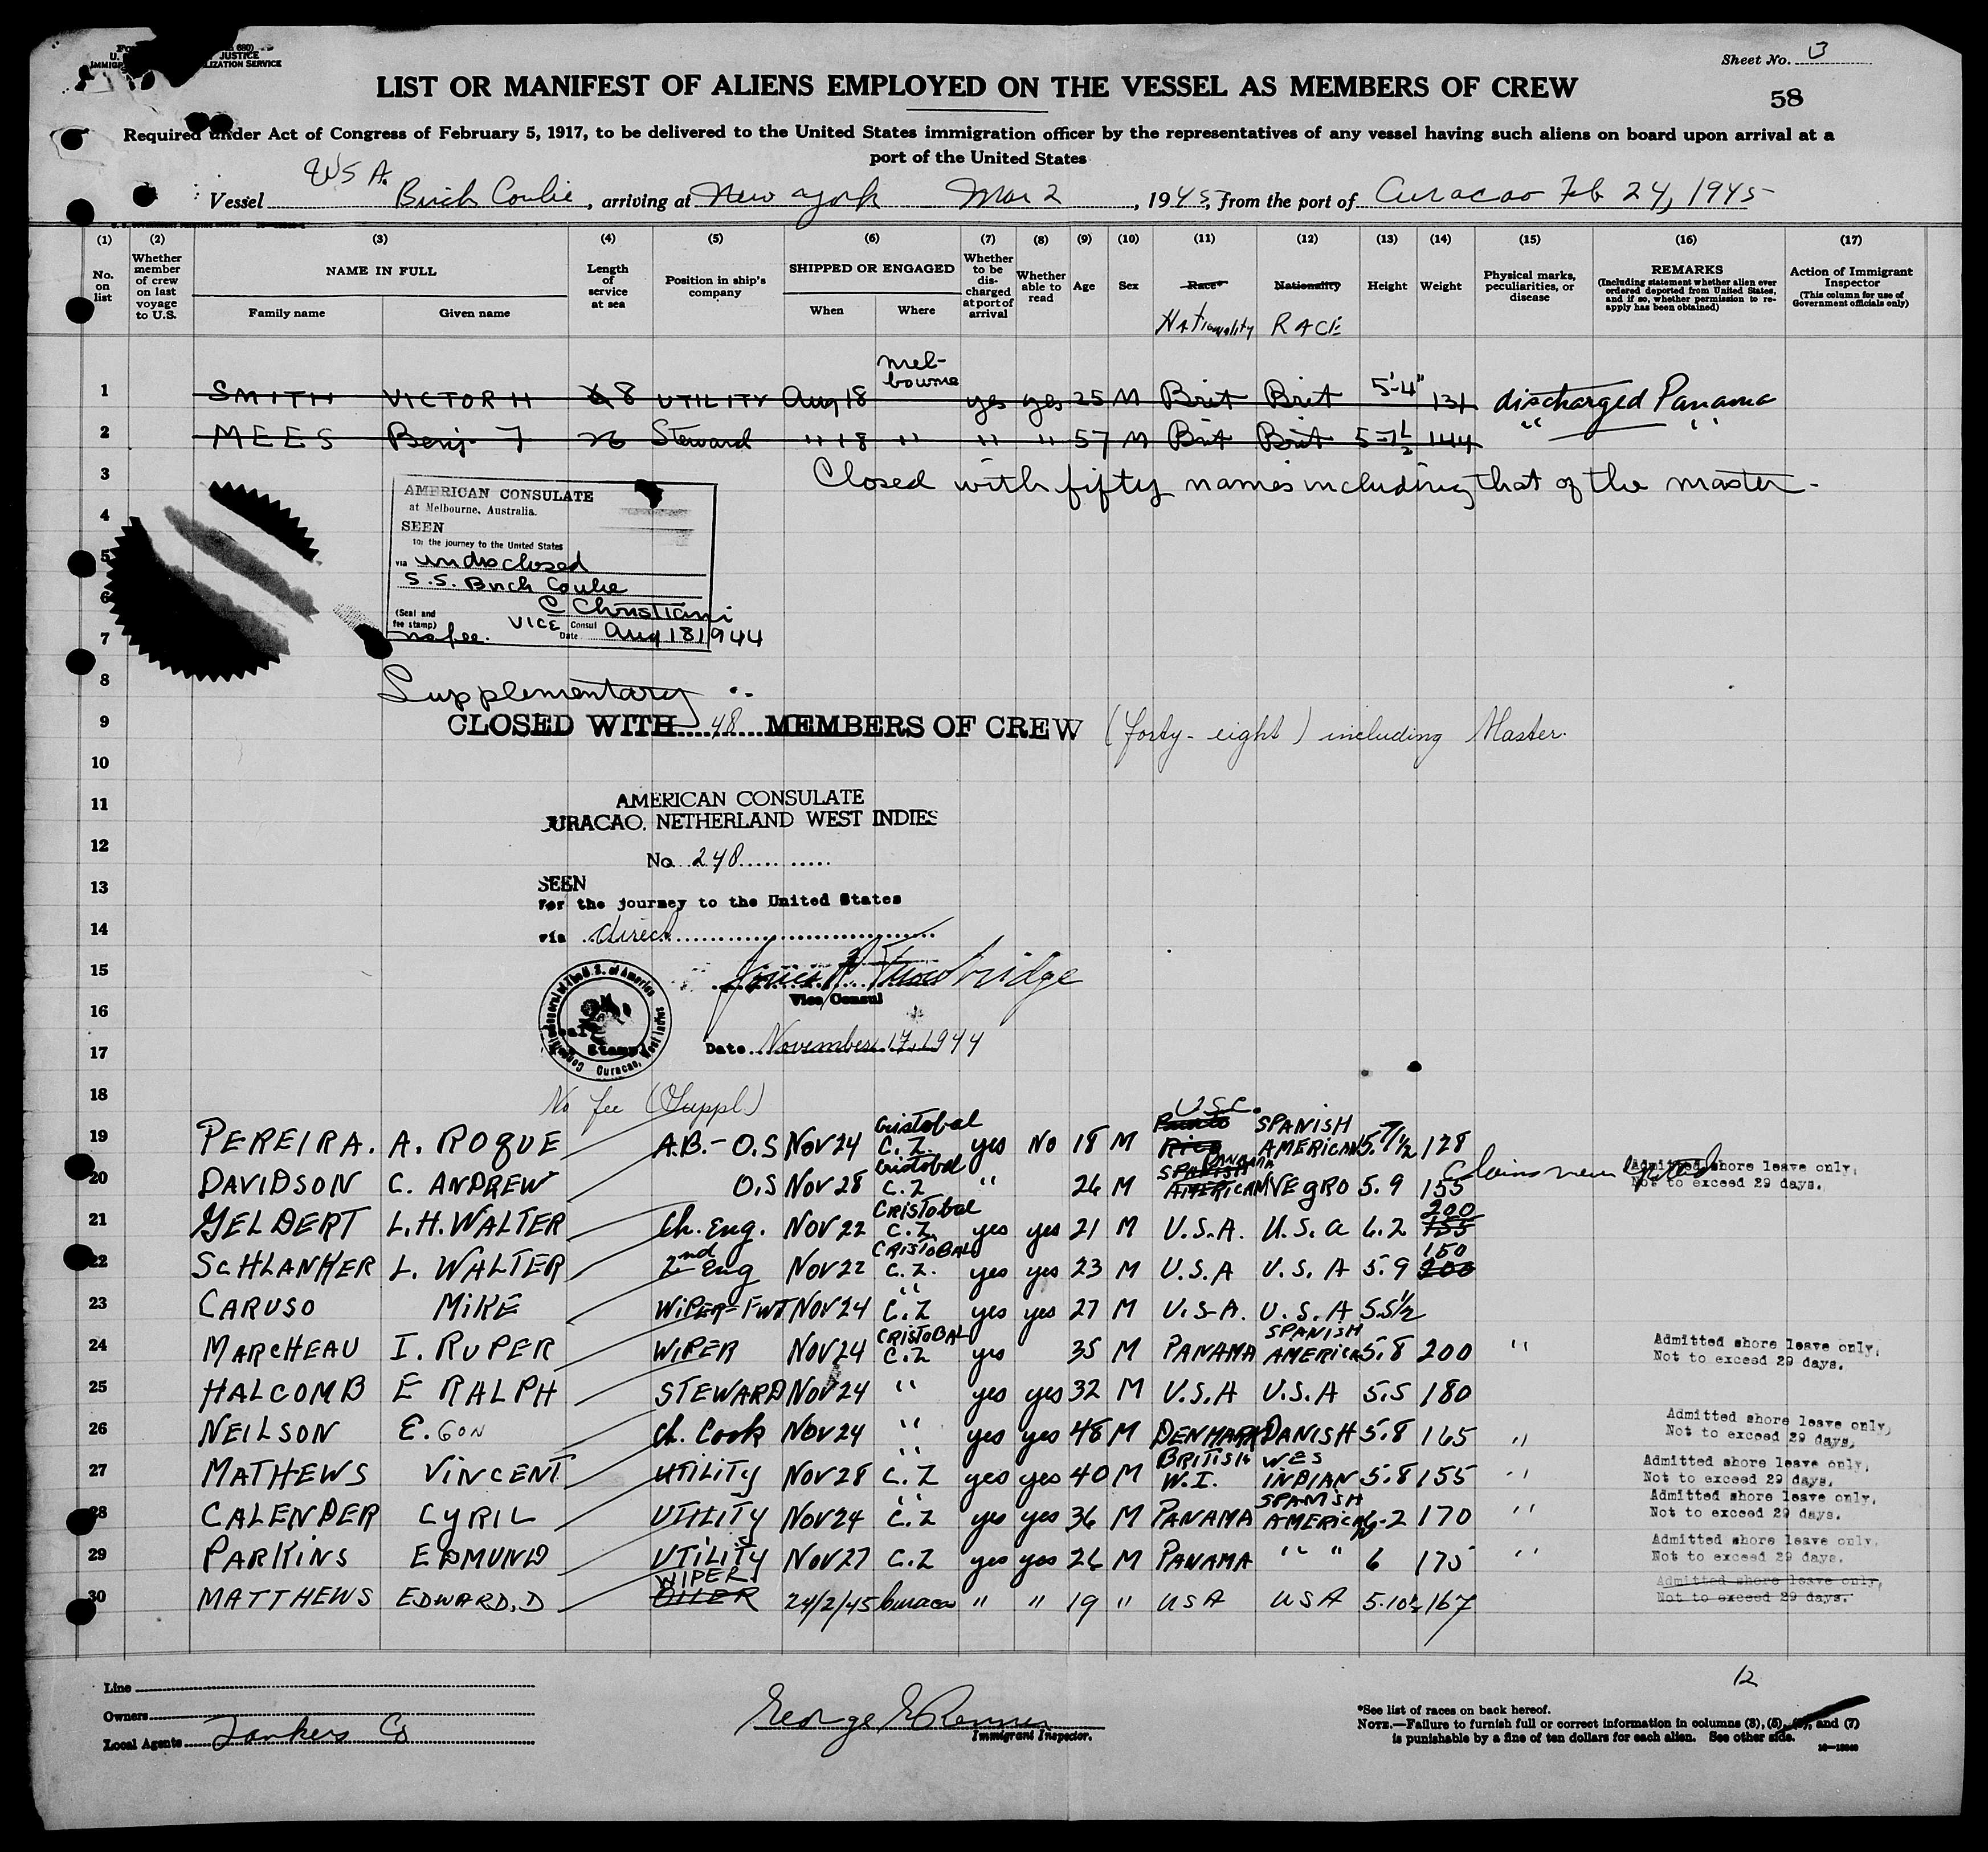 JUSTICE
LIZATION SERVICE
Sheet No. 3
LIST OR MANIFEST OF ALIENS EMPLOYED ON THE VESSEL AS MEMBERS OF CREW
58
Required under Act of Congress of February 5, 1917, to be delivered to the United States immigration officer by the representatives of any vessel having such aliens on board upon arrival at a
port of the United States
WSA.
Vessel Birch Coulie, arriving at New York Mar 2, 1945, from the port of Curacao Feb 24, 1945
(1) (2) (3) (4) (5) (6) (7) (8) (9) (10) (11) (12) (13) (14) (15) (16) (17)
No. on list
Whether member of crew on last voyage to U.S.
NAME IN FULL
Family name Given name
Length of service at sea
Position in ship's company
SHIPPED OR ENGAGED
When Where
Whether to be discharged at port of arrival
Whether able to read
Age
Sex
Race*
Nationality
Nationality
RACE
Height
Weight
Physical marks, peculiarities, or disease
REMARKS
(Including statement whether alien ever ordered deported from United States, and if so, whether permission to re-apply has been obtained)
Action of Immigrant Inspector
(This column for use of Government officials only)
1 SMITH VICTOR H 8 UTILITY Aug 18 Mel-bourne yes yes 25 M Brit Brit 5'-4" 131 discharged Panama
2 MEES Benj 7 26 Steward " 18 " " " 57 M Brit Brit 5-7½ 144 " "
3 Closed with fifty names including that of the master.
4
5
6
7
AMERICAN CONSULATE
at Melbourne, Australia.
SEEN
for the journey to the United States
via undisclosed
S.S. Birch Coulie
C Christiani
(Seal and fee stamp) VICE Consul
no fee. Date Aug 18 1944
8 Supplementary
9 CLOSED WITH 48 MEMBERS OF CREW (forty-eight) including Master.
10
11 AMERICAN CONSULATE
CURACAO, NETHERLAND WEST INDIES
12 No. 248
13 SEEN
For the journey to the United States
14 via direct
15 Trowbridge
16 Vice Consul
17 Date November 17, 1944
18 No fee (Suppl)
19 PEREIRA. A. ROQUE A.B.- O.S NOV 24 Cristobal C.Z. yes NO 18 M Puerto Rico U.S.C. SPANISH AMERICAN 5.7½ 128
20 DAVIDSON C. ANDREW O.S NOV 28 Cristobal C.Z " 26 M SPANISH AMERICAN PANAMA NEGRO 5.9 155 Claims never Admitted shore leave only, Not to exceed 29 days.
21 GELDERT L.H. WALTER Ch. Eng. NOV 22 CRISTOBAL C.Z. yes yes 21 M U.S.A. U.S.A 6.2 155 200
22 SCHLANKER L. WALTER 2nd Eng NOV 22 CRISTOBAL C.Z. yes yes 23 M U.S.A U.S.A 5.9 200 150
23 CARUSO MIKE WIPER-FWT NOV 24 " C.Z yes yes 27 M U.S.A. U.S.A 5.5½
24 MARCHEAU I. RUPER WIPER NOV 24 CRISTOBAL C.Z yes 35 M PANAMA SPANISH AMERICAN 5.8 200 " Admitted shore leave only, Not to exceed 29 days.
25 HALCOMB E RALPH STEWARD NOV 24 " yes yes 32 M U.S.A U.S.A 5.5 180
26 NEILSON E.GON Ch. Cook NOV 24 " yes yes 48 M DENMARK DANISH 5.8 165 " Admitted shore leave only, Not to exceed 29 days.
27 MATHEWS VINCENT UTILITY NOV 28 " C.Z yes yes 40 M BRITISH W.I. WES INDIAN 5.8 155 " Admitted shore leave only, Not to exceed 29 days.
28 CALENDER CYRIL UTILITY NOV 24 " C.Z yes yes 36 M PANAMA SPANISH AMERICAN 6-2 170 " Admitted shore leave only, Not to exceed 29 days.
29 PARKINS EDMUND UTILITY NOV 27 C.Z yes yes 26 M PANAMA " " 6 175 " Admitted shore leave only, Not to exceed 29 days.
30 MATTHEWS EDWARD, D OILER WIPER 24/2/45 Curacao " " 19 " USA USA 5.10½ 167 Admitted shore leave only, Not to exceed 29 days.
12
Line
Owners
Local Agents Tankers Co
George E Renner
Immigrant Inspector.
*See list of races on back hereof.
NOTE.—Failure to furnish full or correct information in columns (3), (5), (6), and (7)
is punishable by a fine of ten dollars for each alien. See other side.